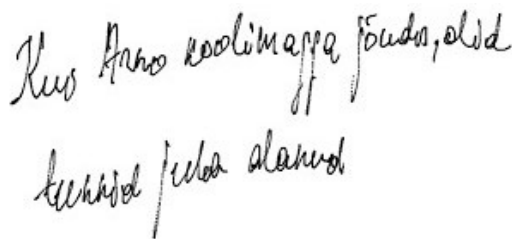 Kus Arno koolimajja jõudis, olid
tunnid juba alanud